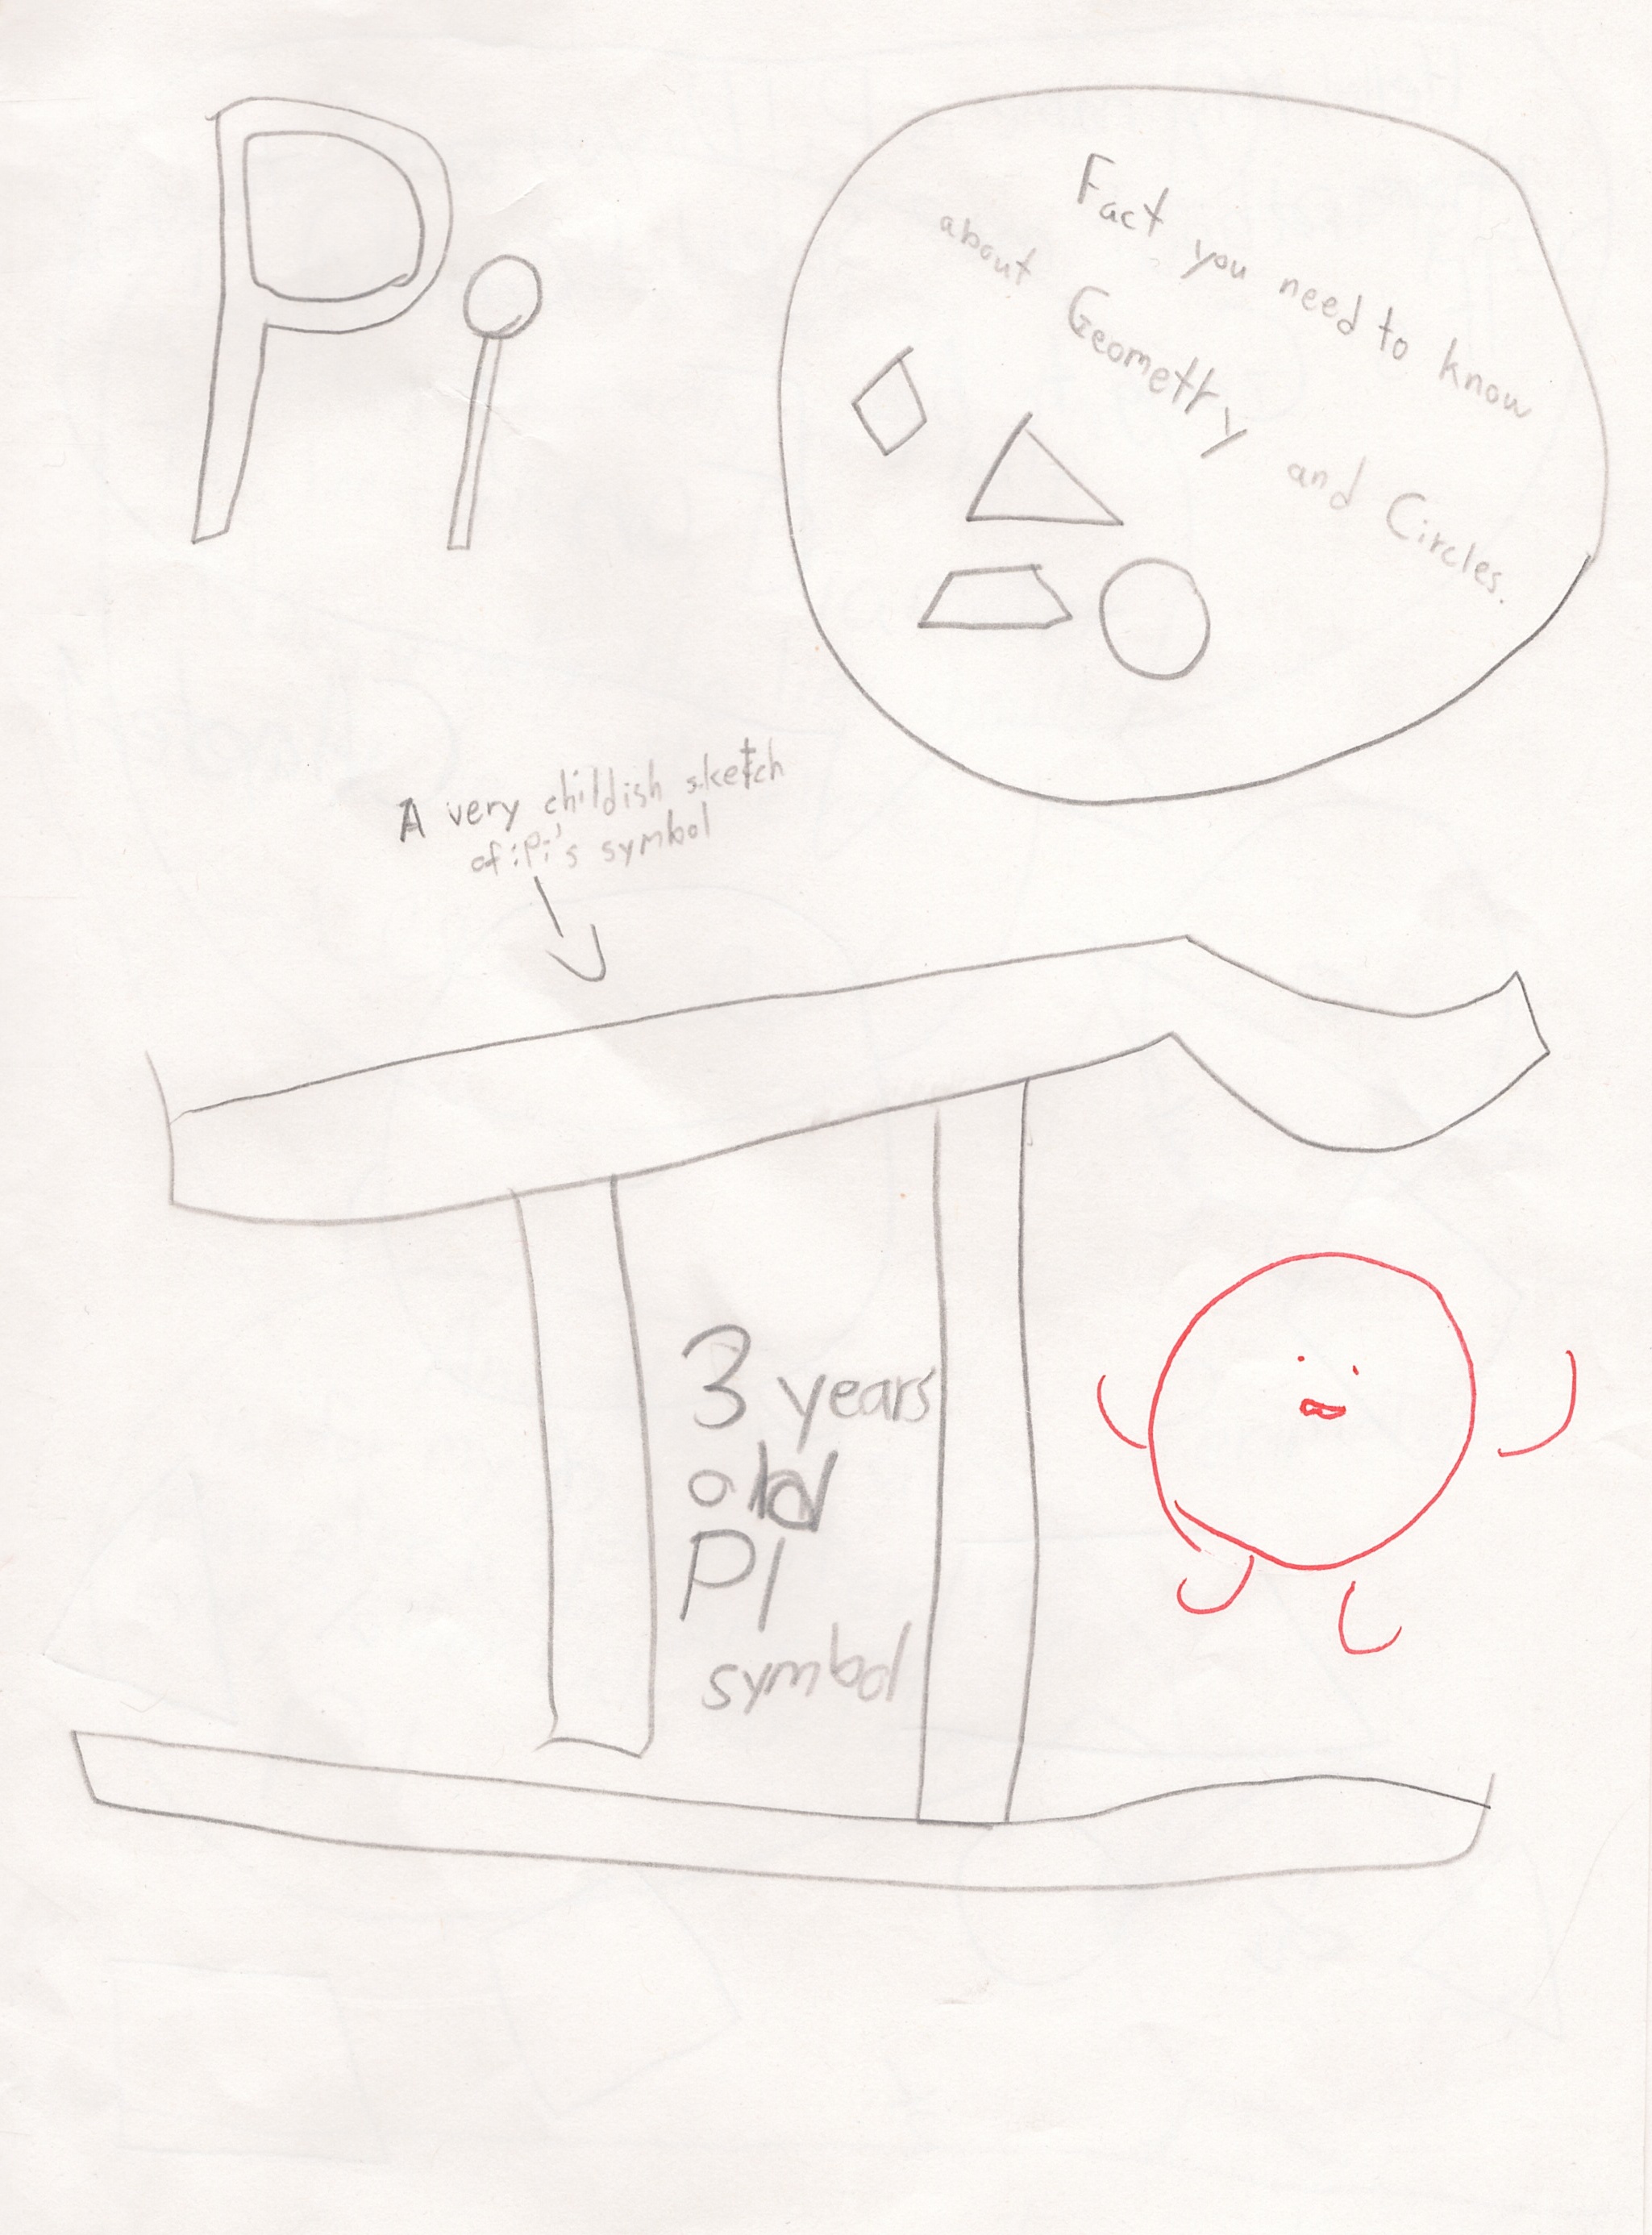 Pi
Fact you need to know
about Geometry and Circles.
A very childish sketch
of Pi's symbol
3 years
old
PI
symbol